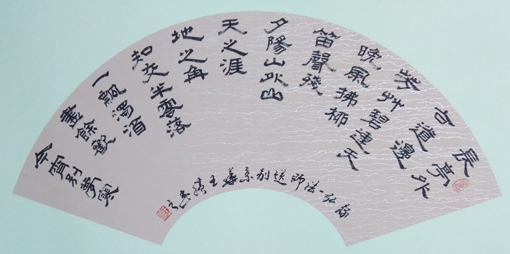 長亭外
古道邊
芳艸碧連天
晚風拂柳
笛聲殘
夕陽山外山
天之涯
地之角
知交半零落
一瓢濁酒
盡餘歡
今宵別夢寒
錄弘一法師送別